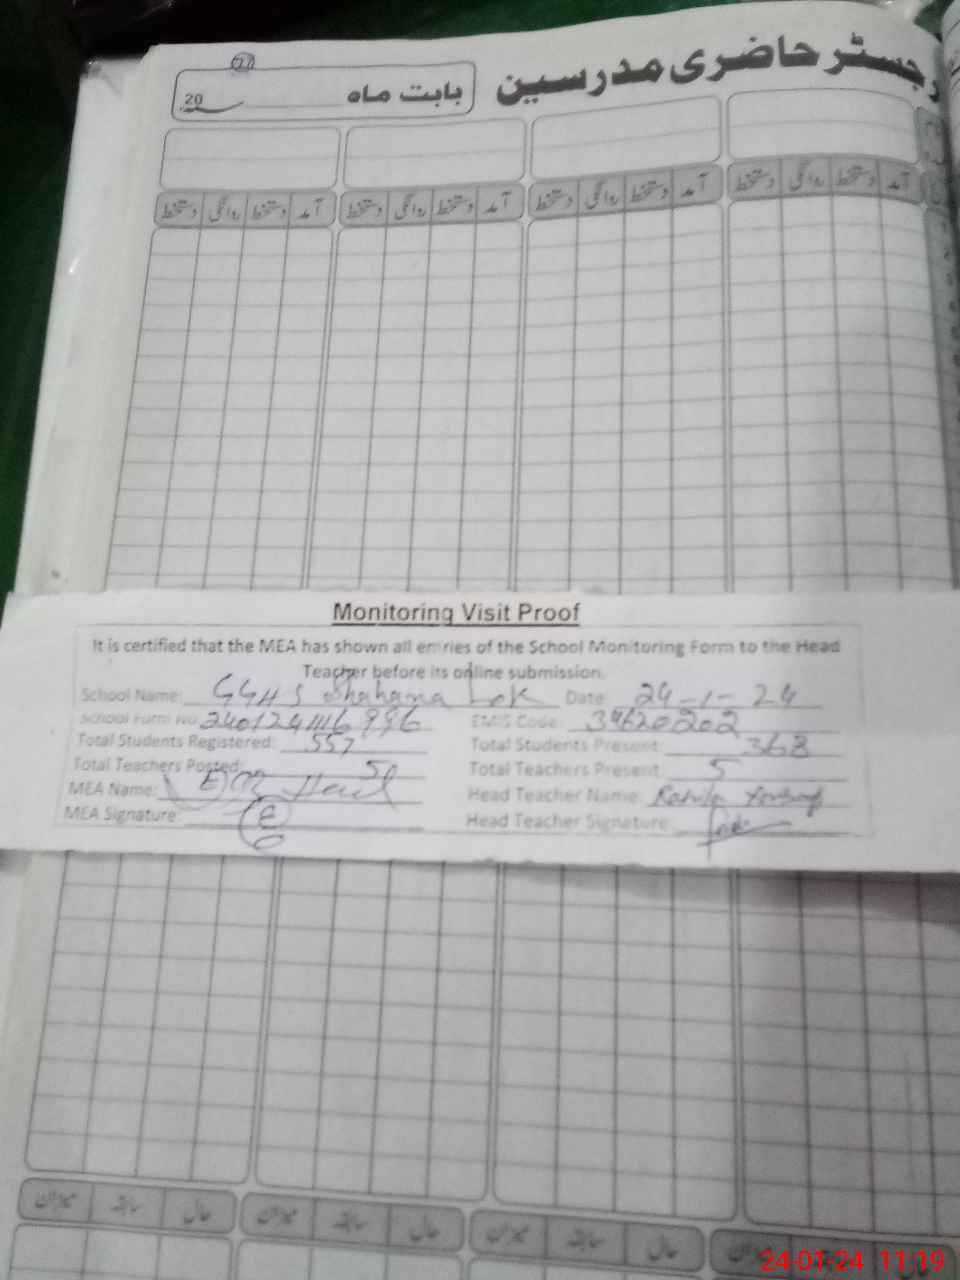 رجسٹر حاضری مدرسین
بابت ماہ 20
آمد دستخط روانگی دستخط آمد دستخط روانگی دستخط آمد دستخط روانگی دستخط آمد دستخط روانگی دستخط
Monitoring Visit Proof
It is certified that the MEA has shown all entries of the School Monitoring Form to the Head
Teacher before its online submission.
School Name: GGHS Shahana Lok Date 24-1-24
School Form No 240124146996 EMIS Code: 34620202
Total Students Registered: 557 Total Students Present: 368
Total Teachers Posted: Total Teachers Present: 5
MEA Name: Head Teacher Name:
MEA Signature: Head Teacher Signature:
حال سابقہ میزان حال سابقہ میزان حال سابقہ میزان
24-01-24 11:19